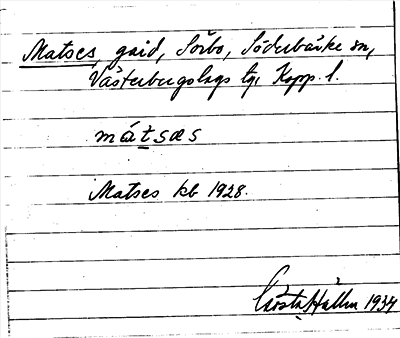 Matses, gård, Sörbo, Söderbärke sn,
Västerbergslags tg, Kopp. l.
mátsæs
Matses kb 1928.
Gösta Hallm 1934